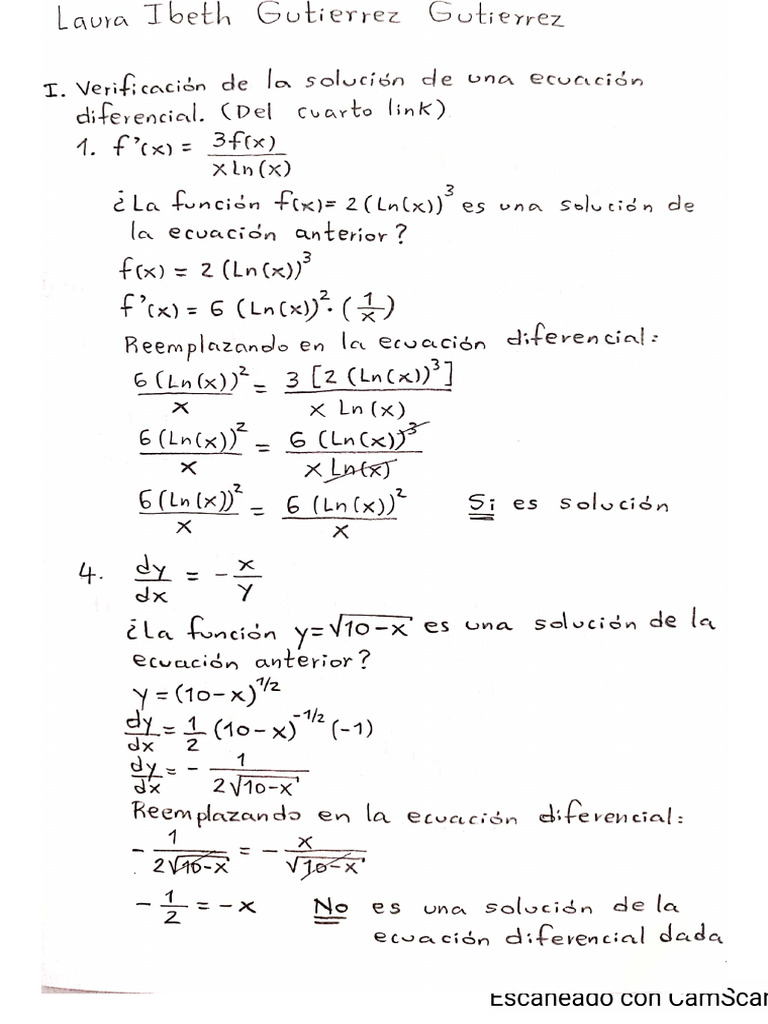 Laura Ibeth Gutierrez Gutierrez
I. Verificación de la solución de una ecuación
diferencial. (Del cuarto link)
1. f'(x) = 3f(x) / x Ln(x)
¿La función f(x) = 2 (Ln(x))³ es una solución de
la ecuación anterior?
f(x) = 2 (Ln(x))³
f'(x) = 6 (Ln(x))² · (1/x)
Reemplazando en la ecuación diferencial:
6 (Ln(x))² / x = 3 [2 (Ln(x))³] / x Ln(x)
6 (Ln(x))² / x = 6 (Ln(x))³ / x Ln(x)
6 (Ln(x))² / x = 6 (Ln(x))² / x Si es solución
4. dy/dx = - x/y
¿La función y = √10-x es una solución de la
ecuación anterior?
y = (10-x)^1/2
dy/dx = 1/2 (10-x)^-1/2 (-1)
dy/dx = - 1 / 2√10-x
Reemplazando en la ecuación diferencial:
- 1 / 2√10-x = - x / √10-x
- 1/2 = -x No es una solución de la
ecuación diferencial dada
Escaneado con CamScan